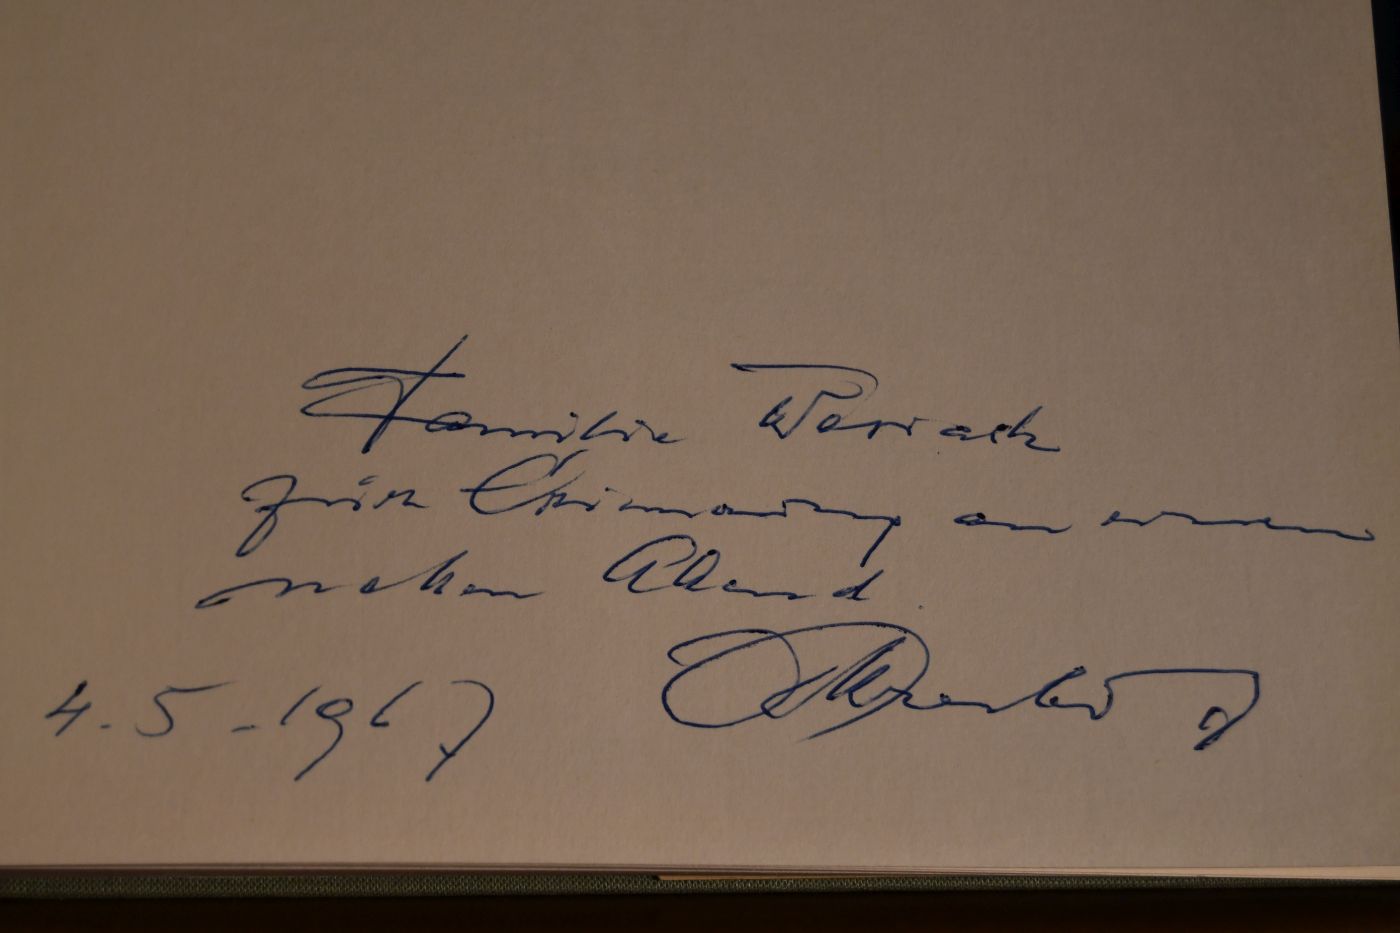 Familie
zur Erinnerung an einen
netten Abend.
4.5.1967